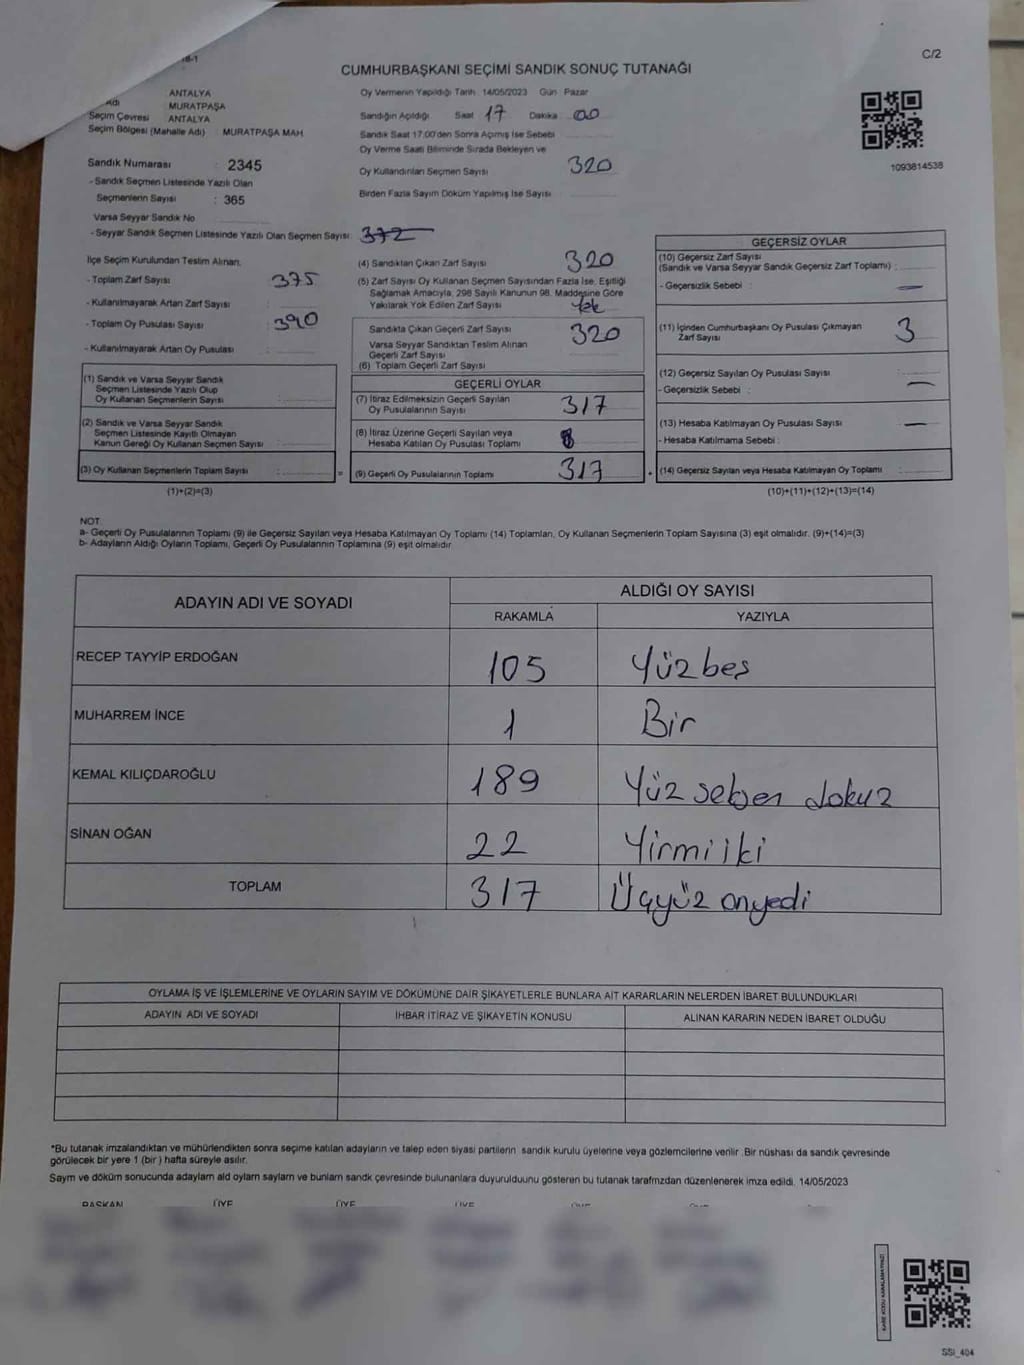 C/2
CUMHURBAŞKANI SEÇİMİ SANDIK SONUÇ TUTANAĞI
ANTALYA
Adı MURATPAŞA
Seçim Çevresi ANTALYA
Seçim Bölgesi (Mahalle Adı) : MURATPAŞA MAH.
Sandık Numarası : 2345
- Sandık Seçmen Listesinde Yazılı Olan
Seçmenlerin Sayısı : 365
Varsa Seyyar Sandık No
- Seyyar Sandık Seçmen Listesinde Yazılı Olan Seçmen Sayısı: 372
Oy Vermenin Yapıldığı Tarih : 14/05/2023 Gün : Pazar
Sandığın Açıldığı Saat : 17 Dakika : 00
Sandık Saat 17.00'den Sonra Açılmış İse Sebebi
Oy Verme Saati Bitiminde Sırada Bekleyen ve
Oy Kullandırılan Seçmen Sayısı 320
Birden Fazla Sayım Döküm Yapılmış İse Sayısı
1093814538
İlçe Seçim Kurulundan Teslim Alınan;
- Toplam Zarf Sayısı : 375
- Kullanılmayarak Artan Zarf Sayısı :
- Toplam Oy Pusulası Sayısı : 390
- Kullanılmayarak Artan Oy Pusulası :
(1) Sandık ve Varsa Seyyar Sandık
Seçmen Listesinde Yazılı Olup
Oy Kullanan Seçmenlerin Sayısı :
(2) Sandık ve Varsa Seyyar Sandık
Seçmen Listesinde Kayıtlı Olmayan
Kanun Gereği Oy Kullanan Seçmen Sayısı :
(3) Oy Kullanan Seçmenlerin Toplam Sayısı :
(1)+(2)=(3)
(4) Sandıktan Çıkan Zarf Sayısı 320
(5) Zarf Sayısı Oy Kullanan Seçmen Sayısından Fazla İse, Eşitliği
Sağlamak Amacıyla, 298 Sayılı Kanunun 98. Maddesine Göre
Yakılarak Yok Edilen Zarf Sayısı Yok
Sandıkta Çıkan Geçerli Zarf Sayısı 320
Varsa Seyyar Sandıktan Teslim Alınan
Geçerli Zarf Sayısı
(6) Toplam Geçerli Zarf Sayısı
GEÇERLİ OYLAR
(7) İtiraz Edilmeksizin Geçerli Sayılan
Oy Pusulalarının Sayısı 317
(8) İtiraz Üzerine Geçerli Sayılan veya
Hesaba Katılan Oy Pusulası Toplamı
= (9) Geçerli Oy Pusulalarının Toplamı 317 +
GEÇERSİZ OYLAR
(10) Geçersiz Zarf Sayısı
(Sandık ve Varsa Seyyar Sandık Geçersiz Zarf Toplamı) :
- Geçersizlik Sebebi : —
(11) İçinden Cumhurbaşkanı Oy Pusulası Çıkmayan
Zarf Sayısı 3
(12) Geçersiz Sayılan Oy Pusulası Sayısı :
- Geçersizlik Sebebi : —
(13) Hesaba Katılmayan Oy Pusulası Sayısı : —
- Hesaba Katılmama Sebebi :
(14) Geçersiz Sayılan veya Hesaba Katılmayan Oy Toplamı :
(10)+(11)+(12)+(13)=(14)
NOT:
a- Geçerli Oy Pusulalarının Toplamı (9) ile Geçersiz Sayılan veya Hesaba Katılmayan Oy Toplamı (14) Toplamları, Oy Kullanan Seçmenlerin Toplam Sayısına (3) eşit olmalıdır. (9)+(14)=(3)
b- Adayların Aldığı Oyların Toplamı, Geçerli Oy Pusulalarının Toplamına (9) eşit olmalıdır.
ADAYIN ADI VE SOYADI
ALDIĞI OY SAYISI
RAKAMLA YAZIYLA
RECEP TAYYİP ERDOĞAN 105 Yüzbeş
MUHARREM İNCE 1 Bir
KEMAL KILIÇDAROĞLU 189 Yüz seksen dokuz
SİNAN OĞAN 22 Yirmi iki
TOPLAM 317 Üçyüz onyedi
OYLAMA İŞ VE İŞLEMLERİNE VE OYLARIN SAYIM VE DÖKÜMÜNE DAİR ŞİKAYETLERLE BUNLARA AİT KARARLARIN NELERDEN İBARET BULUNDUKLARI
ADAYIN ADI VE SOYADI İHBAR İTİRAZ VE ŞİKAYETİN KONUSU ALINAN KARARIN NEDEN İBARET OLDUĞU
*Bu tutanak imzalandıktan ve mühürlendikten sonra seçime katılan adayların ve talep eden siyasi partilerin sandık kurulu üyelerine veya gözlemcilerine verilir. Bir nüshası da sandık çevresinde
görülecek bir yere 1 (bir) hafta süreyle asılır.
Sayım ve döküm sonucunda adayların ald oyların sayların ve bunların sandk çevresinde bulunanlara duyurulduunu gösteren bu tutanak tarafmzdan düzenlenerek imza edildi. 14/05/2023
BAŞKAN ÜYE ÜYE ÜYE
KARE KODU KARALAMAYINIZ!
SSI_404